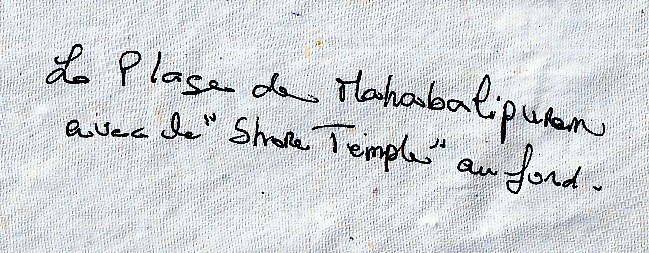 La Plage de Mahabalipuram
avec le "Shore Temple" au fond.